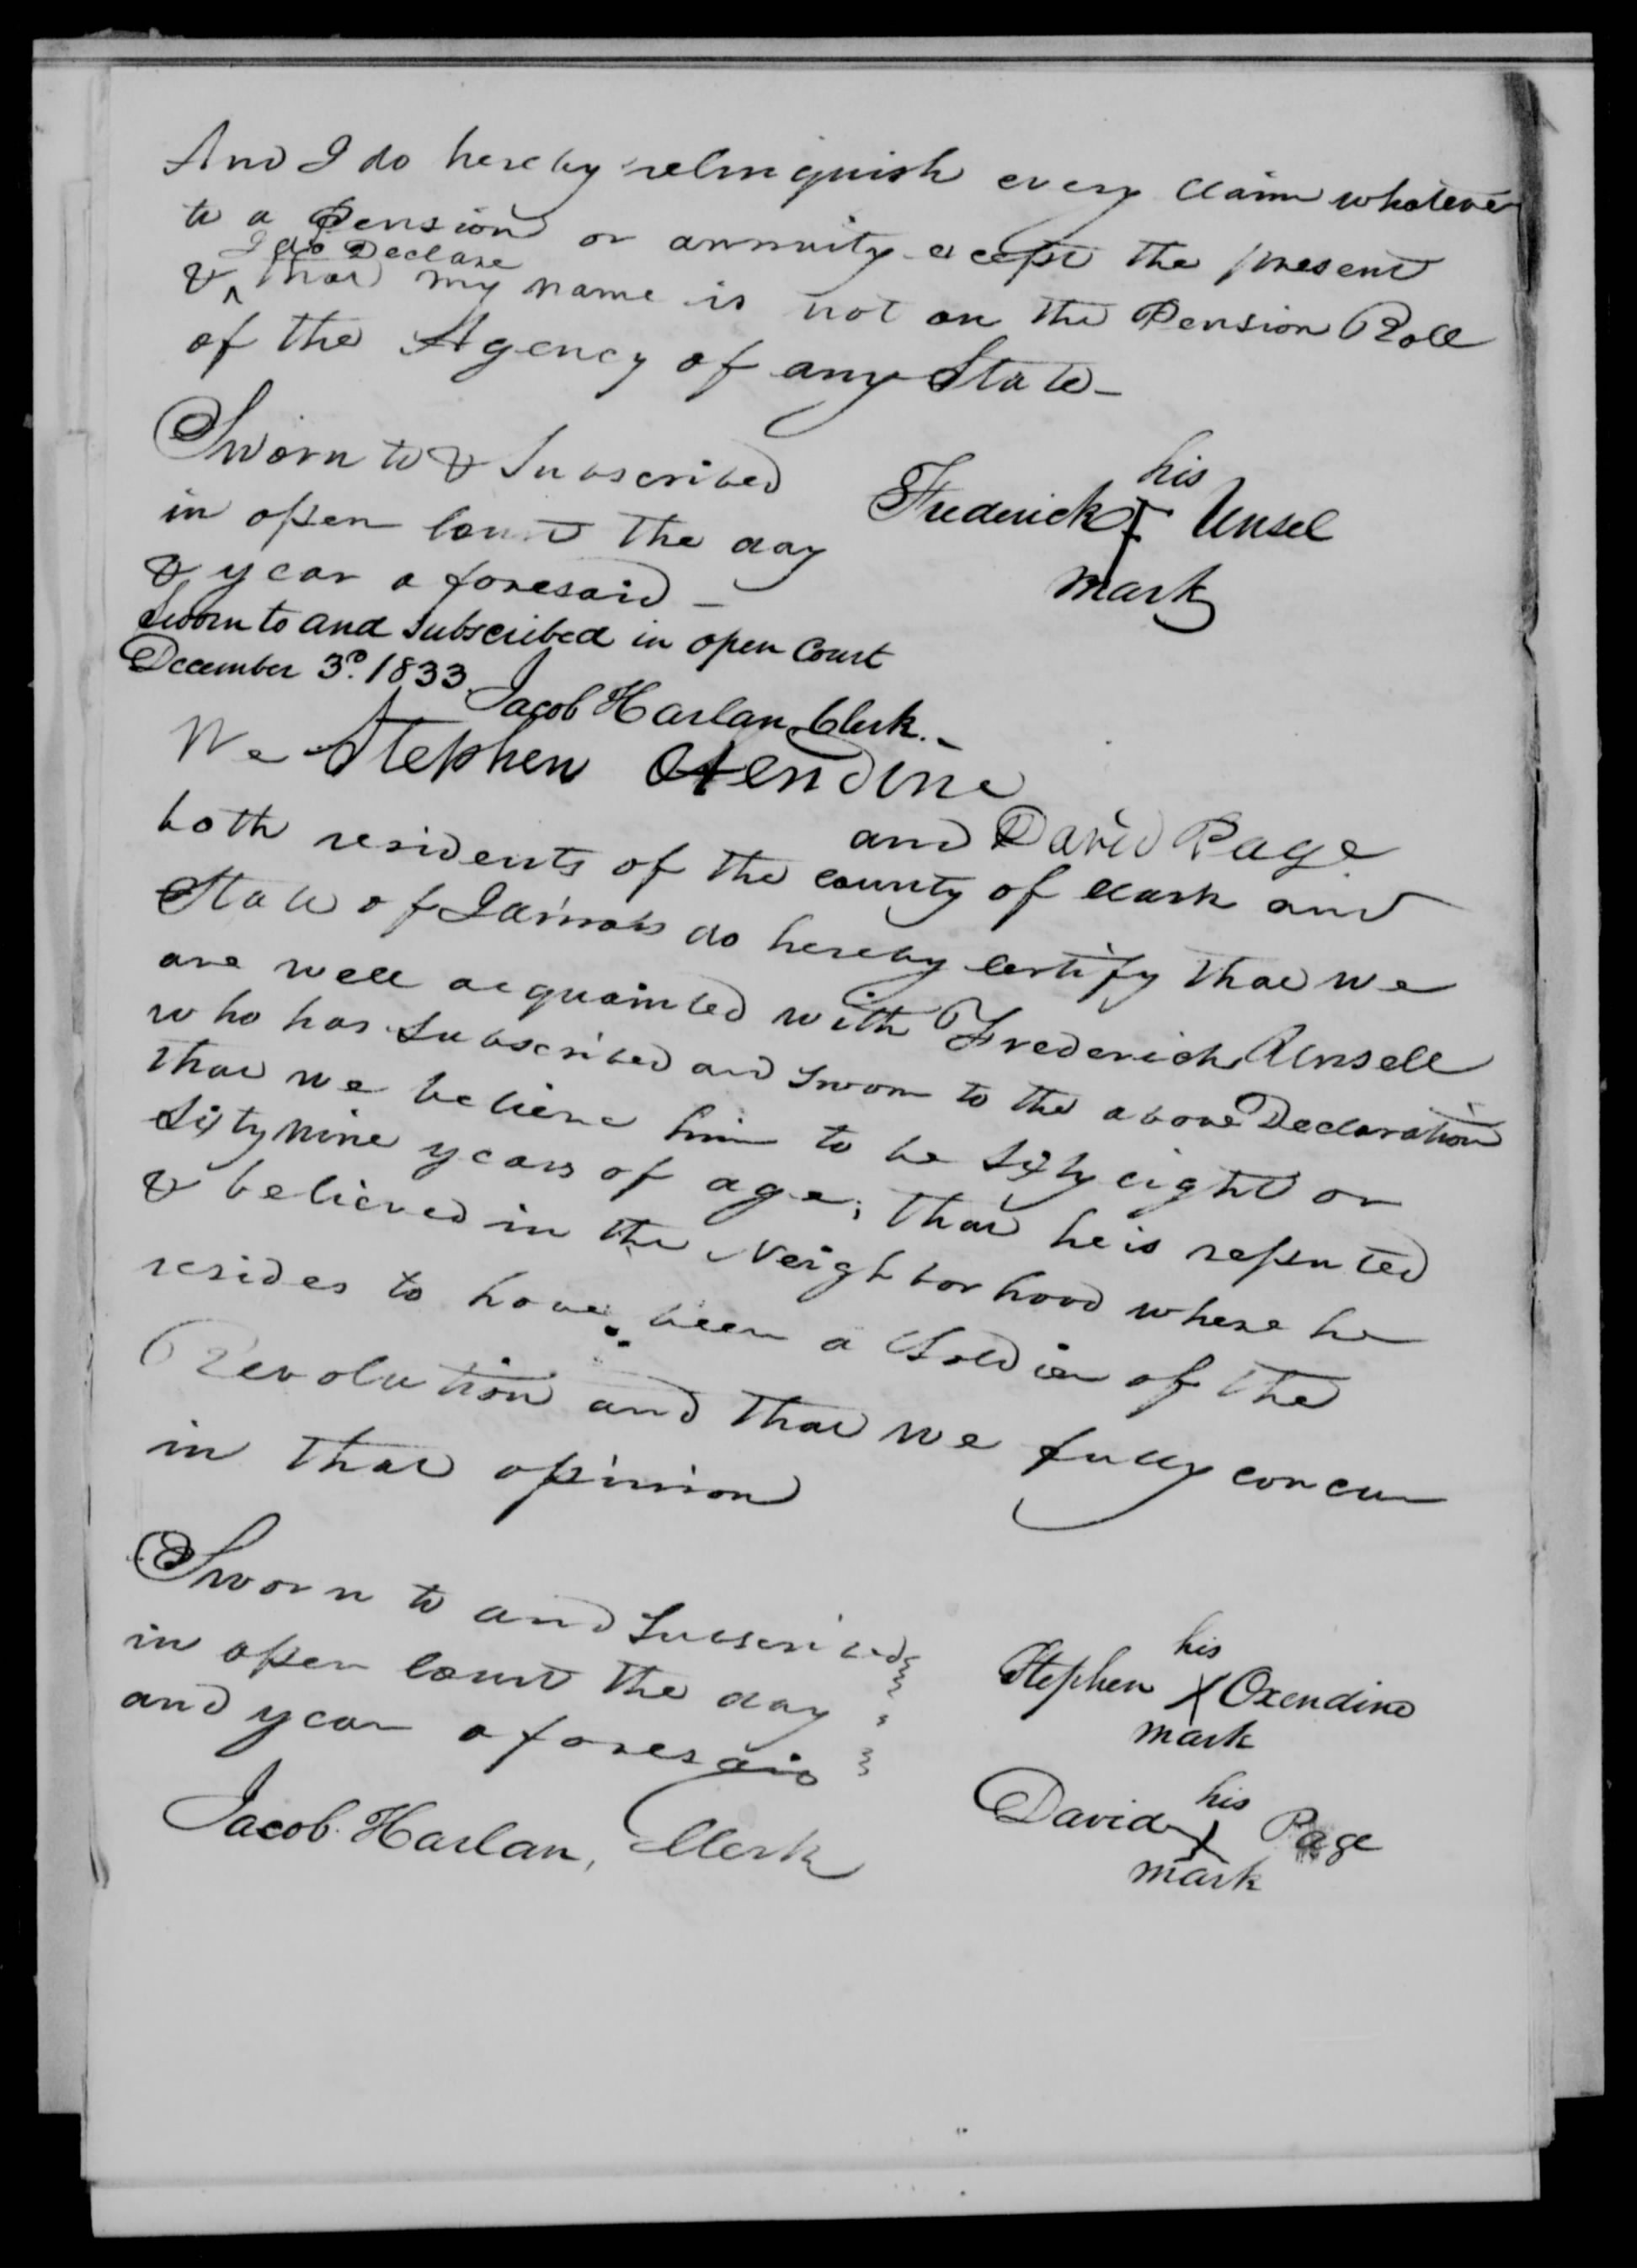 And I do hereby relinquish every claim whatever
to a Pension or annuity except the present
I do Declare
& ^ that my name is not on the Pension Roll
of the Agency of any State -
Sworn to & Subscribed
in open Court the day
& year aforesaid -
his
Frederick X Unsel
mark
Sworn to and subscribed in open Court
December 3d. 1833.
Jacob Harlan, Clerk. -
We Stephen Oxendine
and David Page
both residents of the county of Clark and
State of Illinois do hereby certify that we
are well acquainted with Frederick Unsell
who has subscribed and sworn to the above Declaration
that we believe him to be Sixty eight or
Sixty nine years of age; that he is reputed
& believed in the Neighborhood where he
resides to have been a Soldier of the
Revolution and that we fully concur
in that opinion
Sworn to and Subscribed
in open Court the day
and year aforesaid
Jacob Harlan, Clerk
his
Stephen X Oxendine
mark
his
David X Page
mark